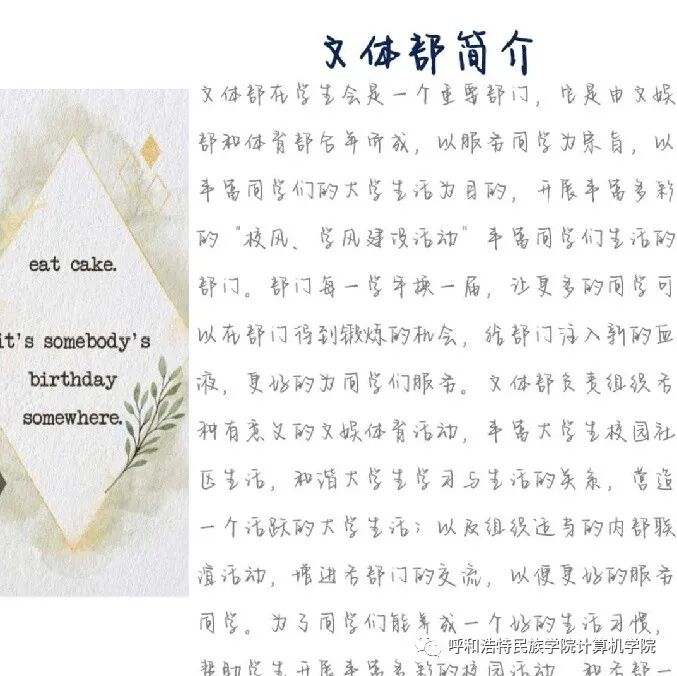 文体部简介
文体部在学生会是一个重要部门，它是由文娱
部和体育部合并所成，以服务同学为宗旨，以
丰富同学们的大学生活为目的，开展丰富多彩
的“校风、学风建设活动”丰富同学们生活的
部门。部门每一学年换一届，让更多的同学可
以在部门得到锻炼的机会，给部门注入新的血
液，更好的为同学们服务。文体部负责组织各
种有意义的文娱体育活动，丰富大学生校园社
区生活，和谐大学生学习与生活的关系，营造
一个活跃的大学生活；以及组织适当的内部联
谊活动，增进各部门的交流，以便更好的服务
同学。为了同学们能养成一个好的生活习惯，
帮助学生开展丰富多彩的校园活动，和各部一
eat cake.
it's somebody's
birthday
somewhere.
呼和浩特民族学院计算机学院